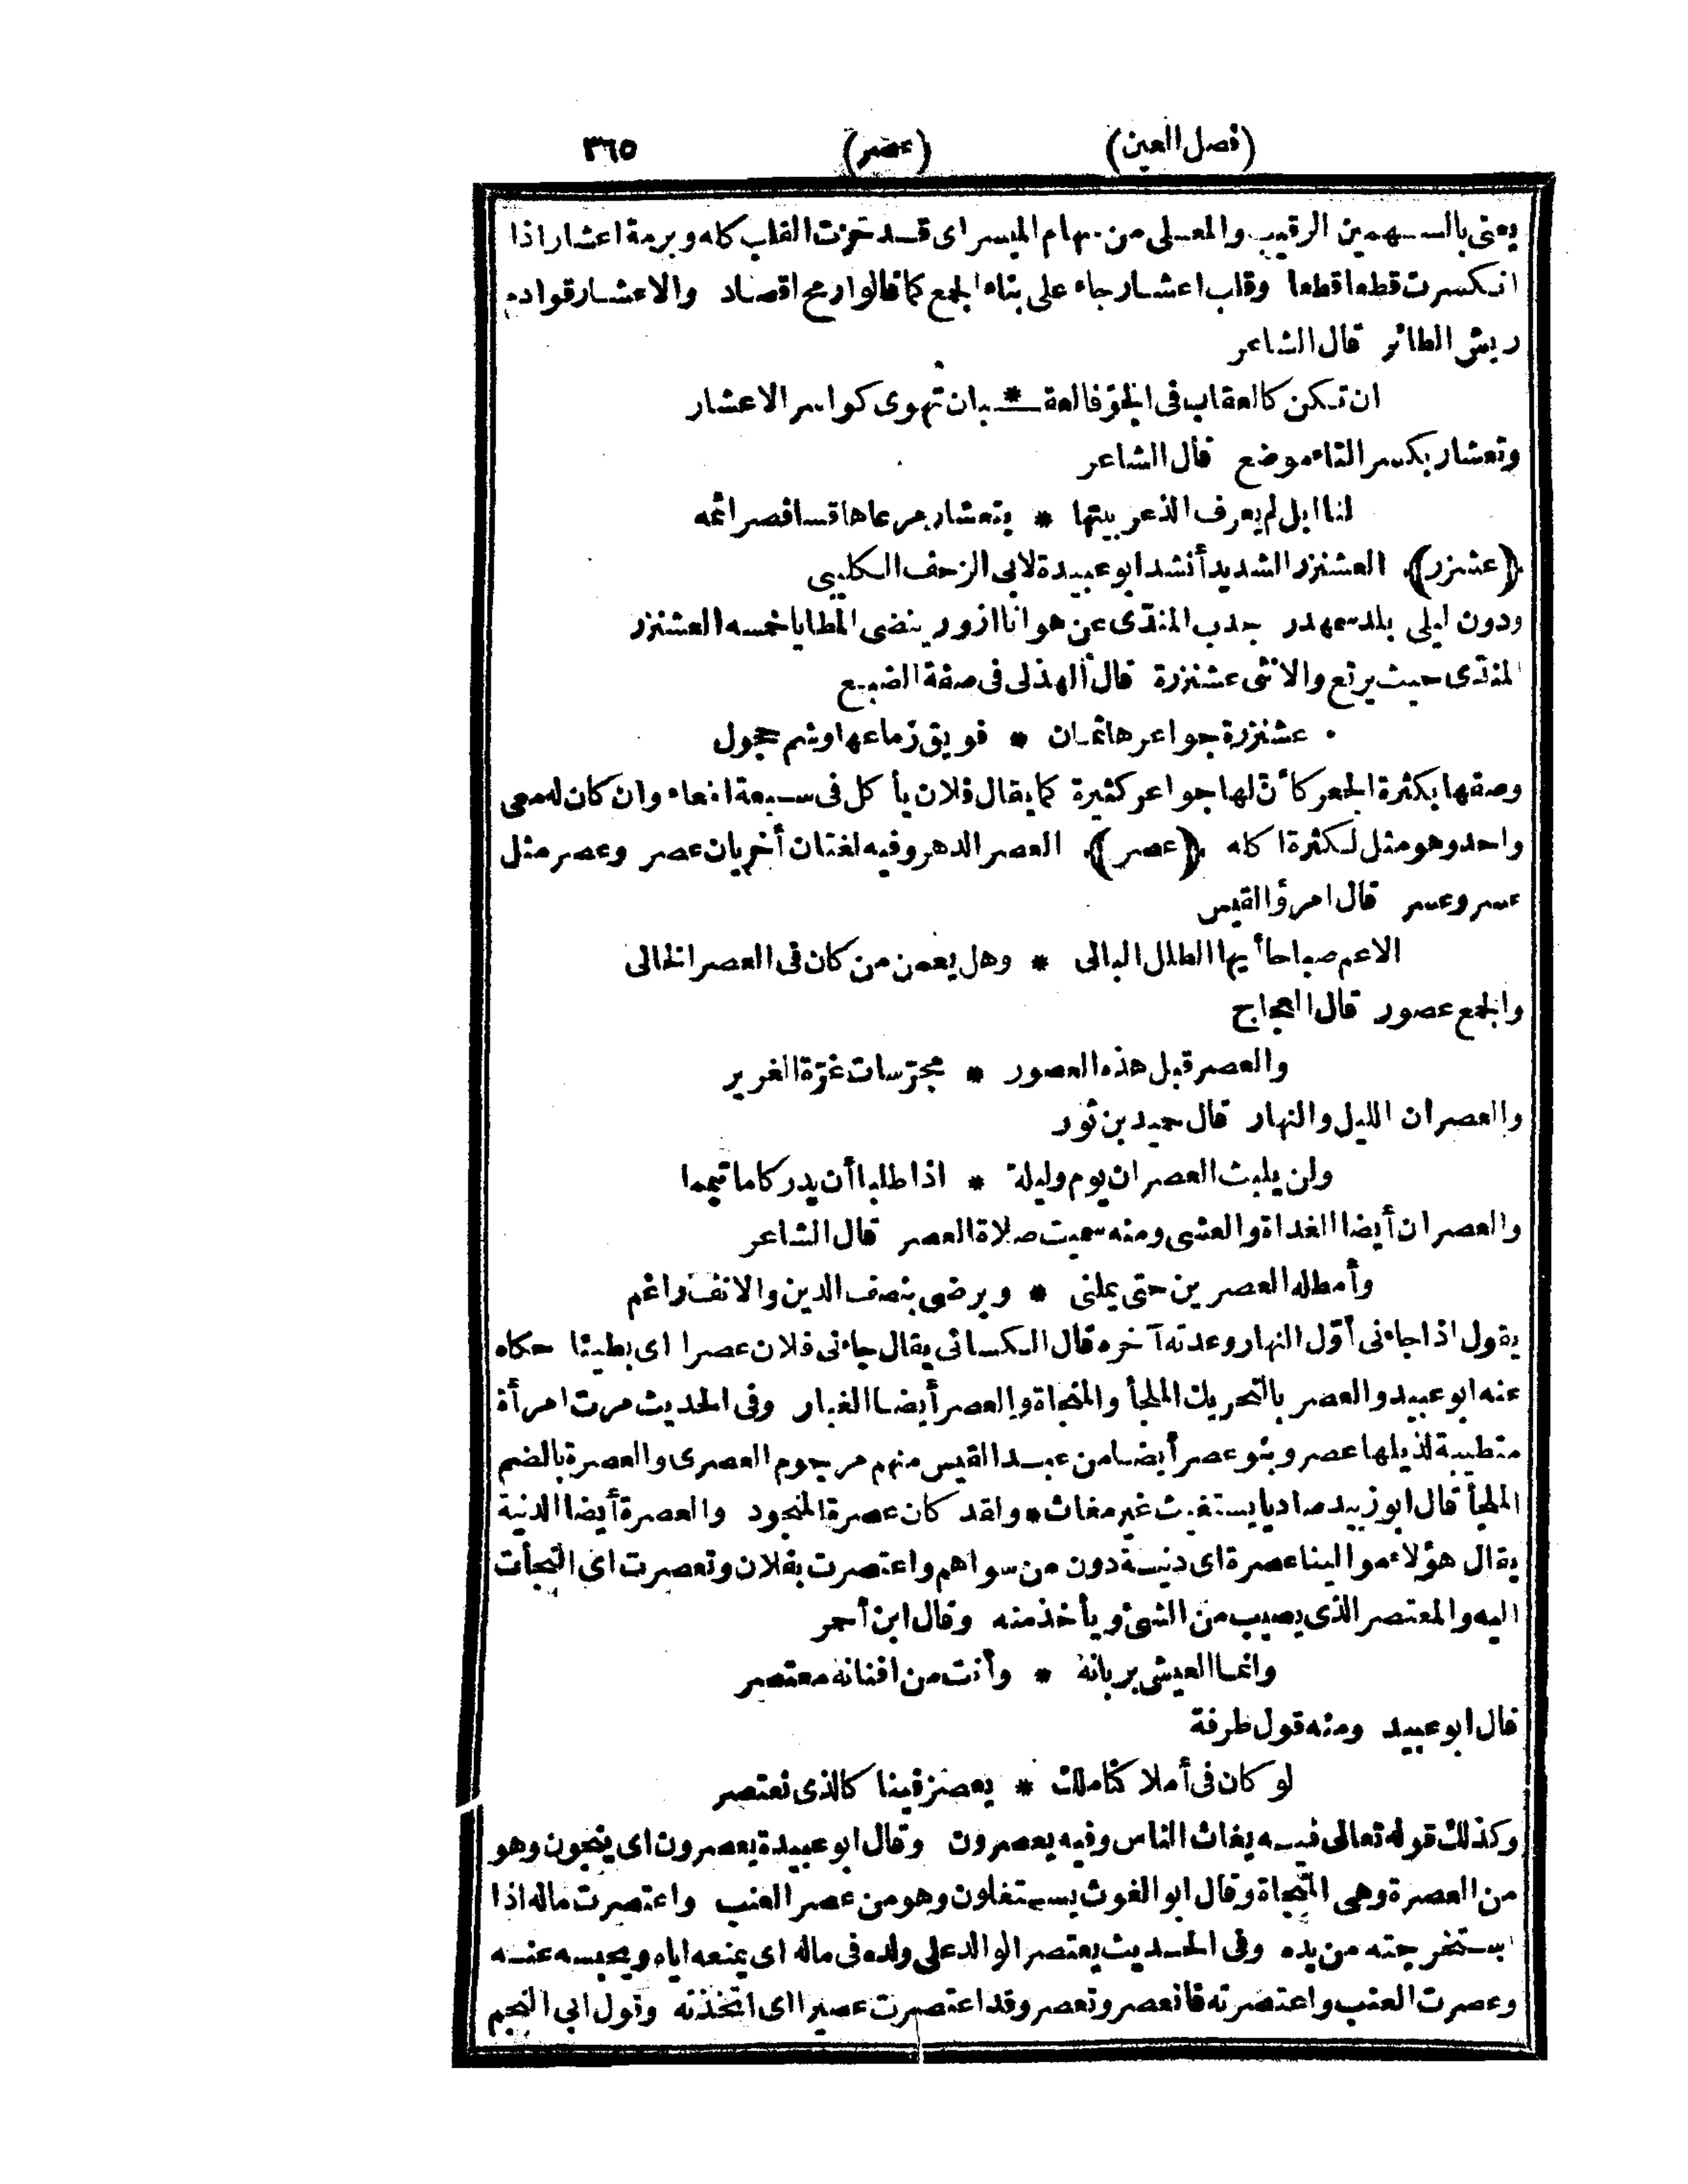 (فصل العين) (عصر) ٣٦٥
يعنى بالسهمين الرقيب والمعلى من سهام الميسر اى قد حزت القلب كله وبرمة اعشار اذا
انكسرت قطعا قطعا وقلب اعشار جاء على بناء الجمع كما قالوا رمح اقصاد والاعشار قوادم
ريش الطائر قال الشاعر
ان تكن كالعقاب فى الجوّ فالعقـ * ـبان تهوى كواسر الاعشار
وتعشار بكسر التاء موضع قال الشاعر
لنا ابل لم يعرف الذعر بيتها * بتعشار مرعاها قسا فصرائمه
﴿عشنزر﴾ العشنزر الشديد أنشد ابو عبيدة لابى الزحف الكليبى
ودون ليلى بلد سمهدر جدب المندّى عن هوانا ازور ينضى المطايا خمسه العشنزر
المندّى حيث يرتع والانثى عشنزرة قال الهذلى فى صفة الضبع
عشنزرة جواعرها ثمان * فويق زماعها وشم حجول
وصفها بكثرة الجعر كأنّ لها جواعر كثيرة كما يقال فلان يأكل فى سبعة امعاء وان كان له معى
واحد وهو مثل لكثرة اكله ﴿عصر﴾ العصر الدهر وفيه لغتان أخريان عصر وعصر مثل
عسر وعسر قال امرؤ القيس
الا عم صباحا أيها الطلل البالى * وهل يعمن من كان فى العصر الخالى
والجمع عصور قال العجاج
والعصر قبل هذه العصور * مجرّسات غرّة الغرير
والعصران الليل والنهار قال حميد بن ثور
ولن يلبث العصران يوم وليلة * اذا طلبا أن يدركا ما تيمما
والعصران أيضا الغداة والعشى ومنه سميت صلاة العصر قال الشاعر
وأمطله العصرين حتى يملنى * ويرضى بنصف الدين والانف راغم
يقول اذا جاءنى أوّل النهار وعدته آخره قال الكسائى يقال جاءنى فلان عصرا اى بطيئا حكاه
عنه ابو عبيد والعصر بالتحريك الملجأ والمنجاة والعصر أيضا الغبار وفى الحديث مرت امرأة
متطيبة لذيلها عصر وبنو عصر أيضا من عبد القيس منهم مرجوم العصرى والعصرة بالضم
الملجأ قال ابو زبيد صاديا يستغيث غير مغاث * ولقد كان عصرة المنجود والعصرة أيضا الدنية
يقال هؤلاء موالينا عصرة اى دنية دون من سواهم واعتصرت بفلان وتعصرت اى التجأت
اليه والمعتصر الذى يصيب من الشئ ويأخذ منه وقال ابن أحمر
وانما العيش بربانه * وأنت من افنانه معتصر
قال ابو عبيد ومنه قول طرفة
لو كان فى أملاكنا ملك * يعصر فينا كالذى نعتصر
وكذلك قوله تعالى فيه يغاث الناس وفيه يعصرون وقال ابو عبيدة يعصرون اى ينجون وهو
من العصرة وهى المنجاة وقال ابو الغوث يستغلون وهو من عصر العنب واعتصرت ماله اذا
استخرجته من يده وفى الحديث يعتصر الوالد على ولده فى ماله اى يمنعه اياه ويحبسه عنه
وعصرت العنب واعتصرته فانعصر وتعصر وقد اعتصرت عصيرا اى اتخذته وقول ابى النجم